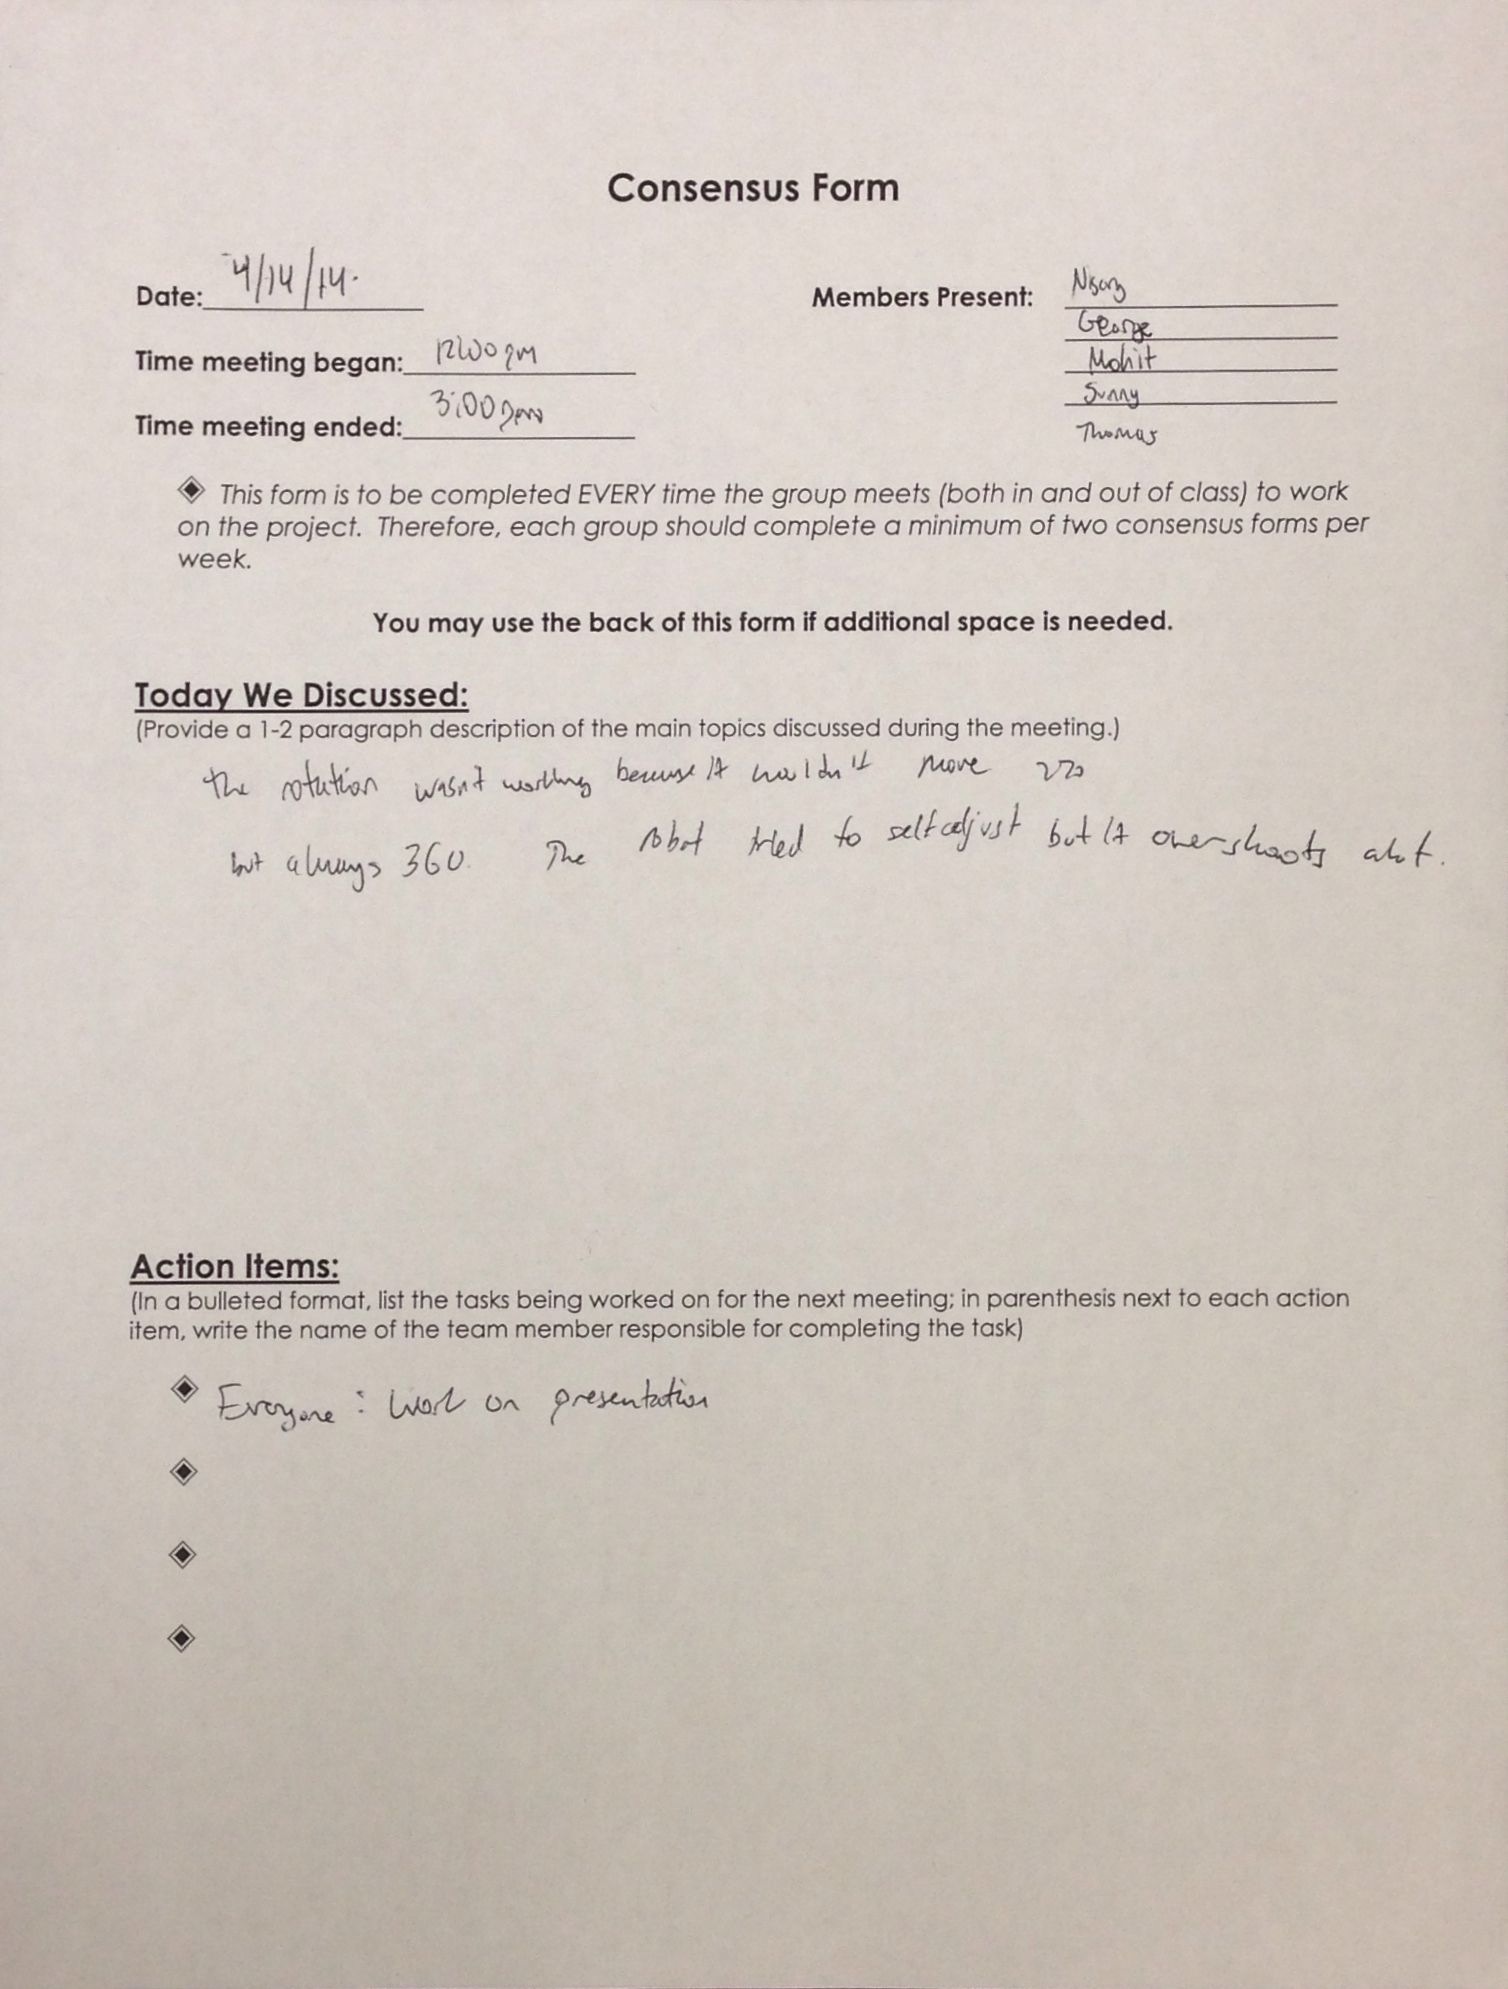 Consensus Form
Date: 4/14/14.
Members Present:
George
Mohit
Sunny
Thomas
Time meeting began: 12:00 pm
Time meeting ended: 3:00 pm
This form is to be completed EVERY time the group meets (both in and out of class) to work
on the project. Therefore, each group should complete a minimum of two consensus forms per
week.
You may use the back of this form if additional space is needed.
Today We Discussed:
(Provide a 1-2 paragraph description of the main topics discussed during the meeting.)
The rotation wasn't working because it wouldn't move
but always 360. The robot tried to self adjust but it overshoots alot.
Action Items:
(In a bulleted format, list the tasks being worked on for the next meeting; in parenthesis next to each action
item, write the name of the team member responsible for completing the task)
Everyone: work on presentation